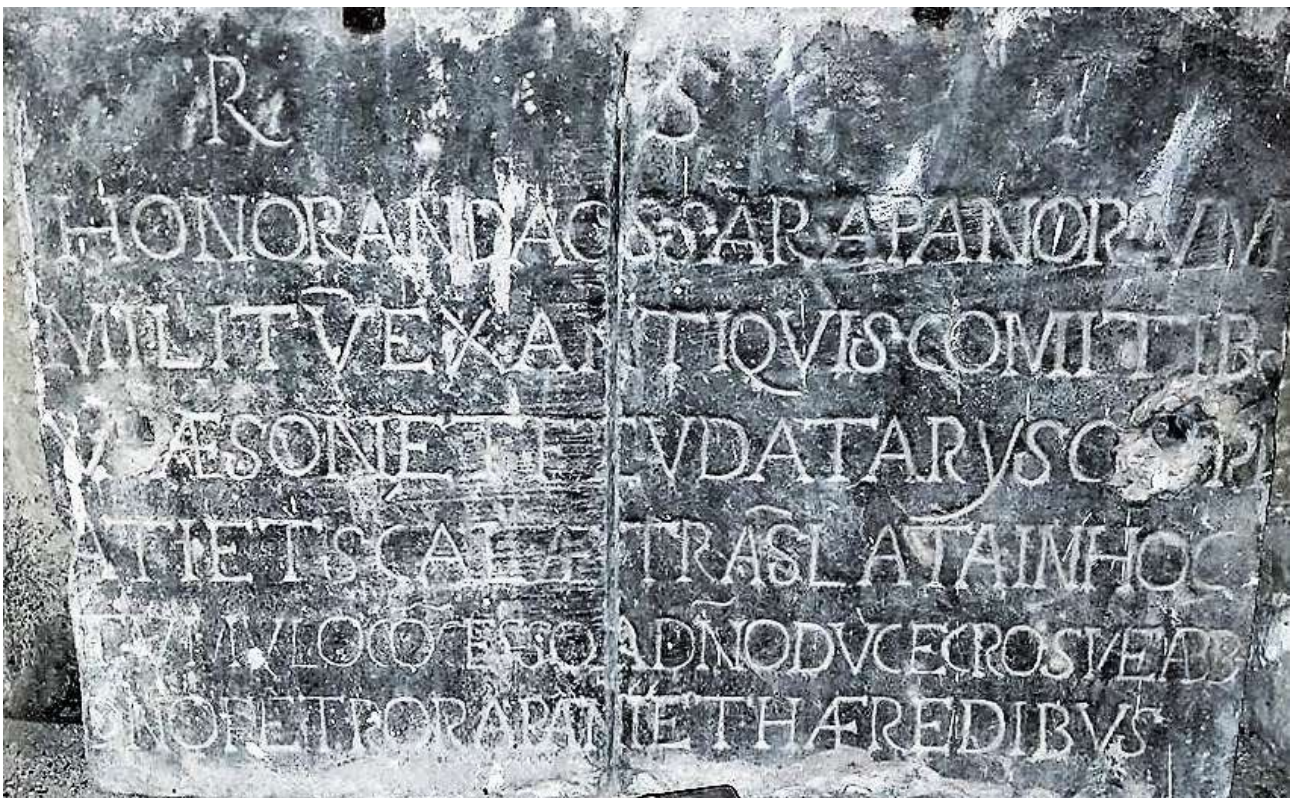 R I
HONORANDA OSSA RAPANORVM
MILITV̄ EX ANTIQVIS COMITTIB·
ÆSONI ET FEVDATARYS
ATI ET SCALÆ TRĀSLATA IN HOC
TVMVLO CŌCESSO A DÑO DVCE CROSVE ABB
DNO PETRO RAPANI ET HÆREDIBVS